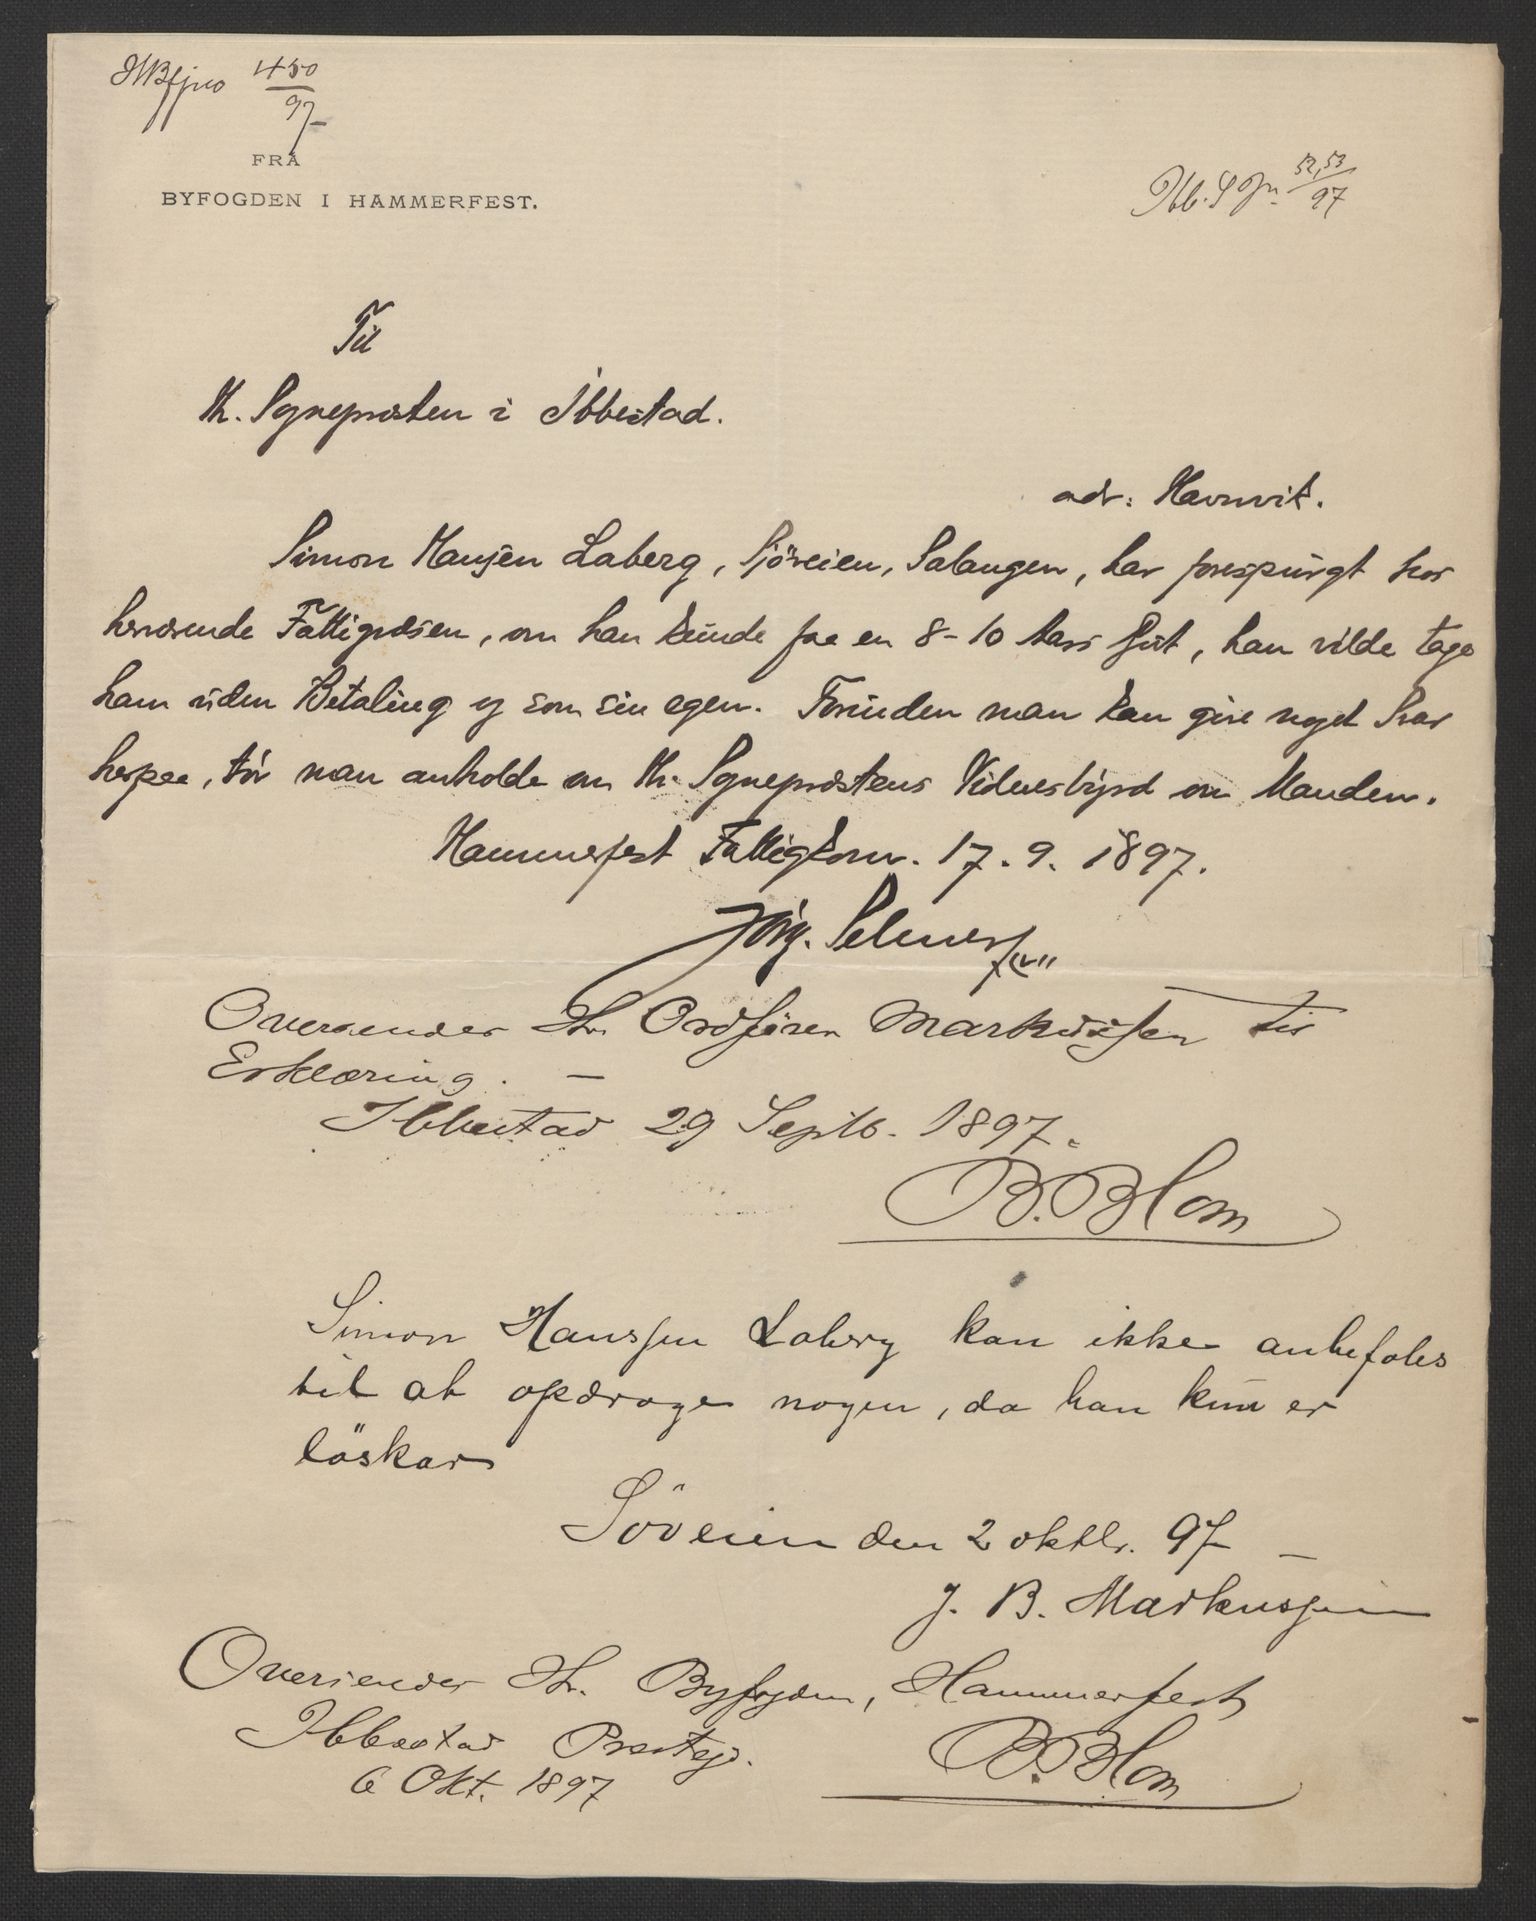 HBfjno 450/97
FRA
BYFOGDEN I HAMMERFEST.
Ibb. S Jn. 52,53/97
Til
Hr. Sognepræsten i Ibbestad.
adr: Havnvik.
Simon Hansen Laberg, Sjöveien, Salangen, har forespurgt hos
herværende Fattigvæsen, om han kunde faa en 8-10 Aars Gut, han vilde tage
ham uden Betaling og som sin egen. Forinden man kan give noget Svar
herpaa, tør man anholde om Hr. Sognepræstens Vidnesbyrd om Manden.
Hammerfest Fattigkom. 17. 9. 1897.
Jörg. Selmer
Oversendes Hr. Ordfører Markussen til
Erklæring. —
Ibbestad 29 Septb. 1897.
B. Blom
Simon Hanssen Laberg kan ikke anbefales
til at opdrage nogen, da han kun er
löskar
Söveien den 2 oktbr. 97 —
J. B. Markussen
Oversendes Hr. Byfogden, Hammerfest
Ibbestad Præstgj.
6 Okt. 1897
B. Blom